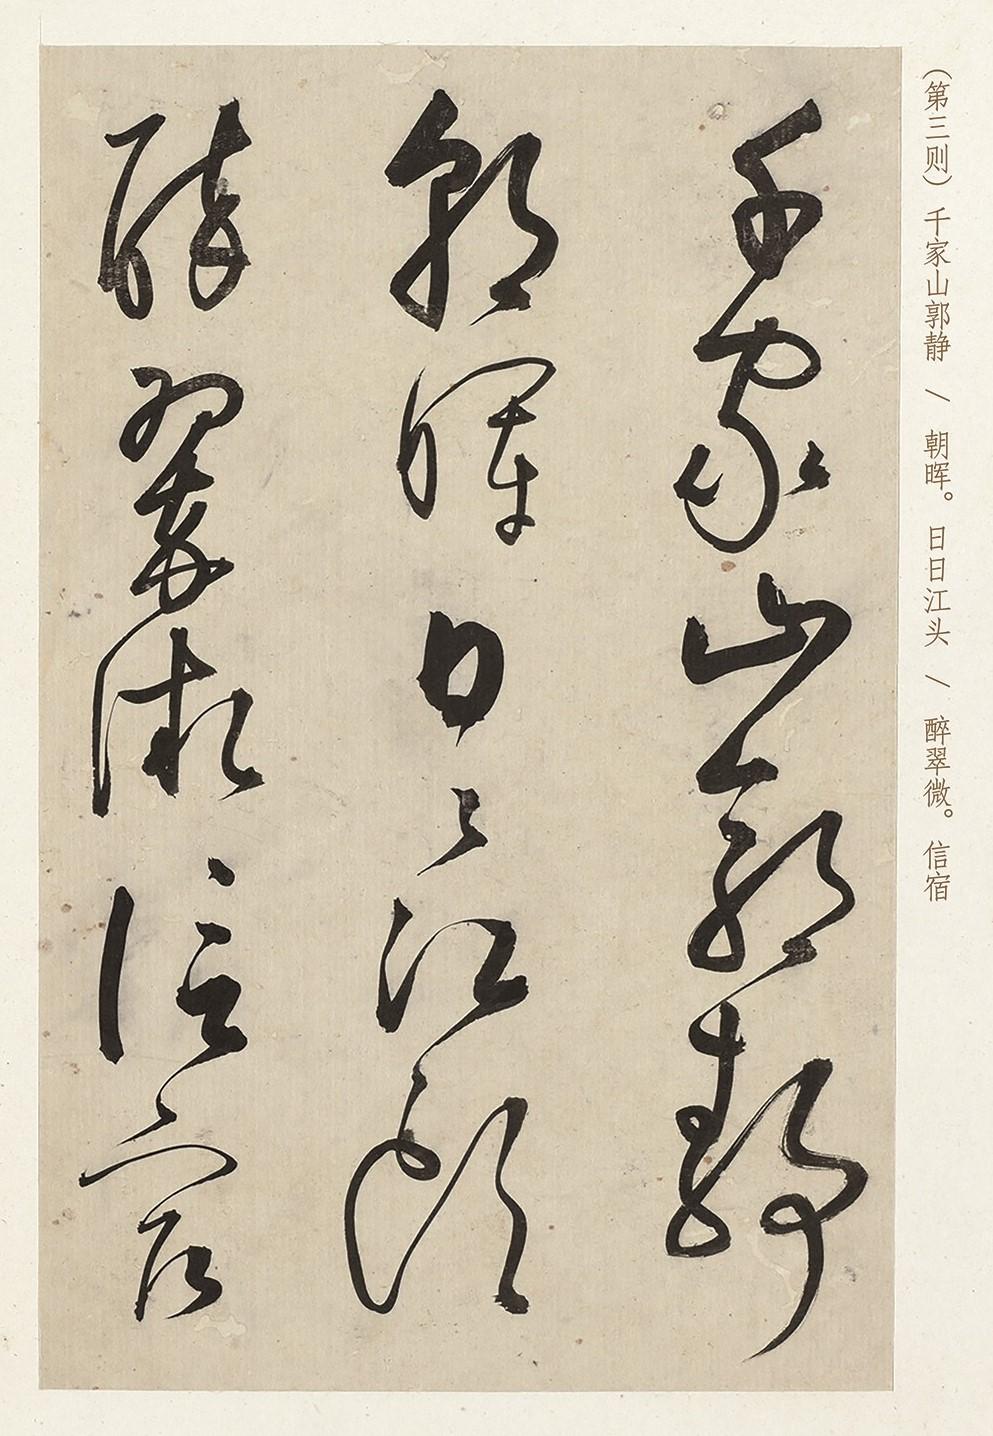 (第三则)千家山郭静 / 朝晖。日日江头 / 醉翠微。信宿
千家山郭静
朝晖日〻江头
醉翠微信宿